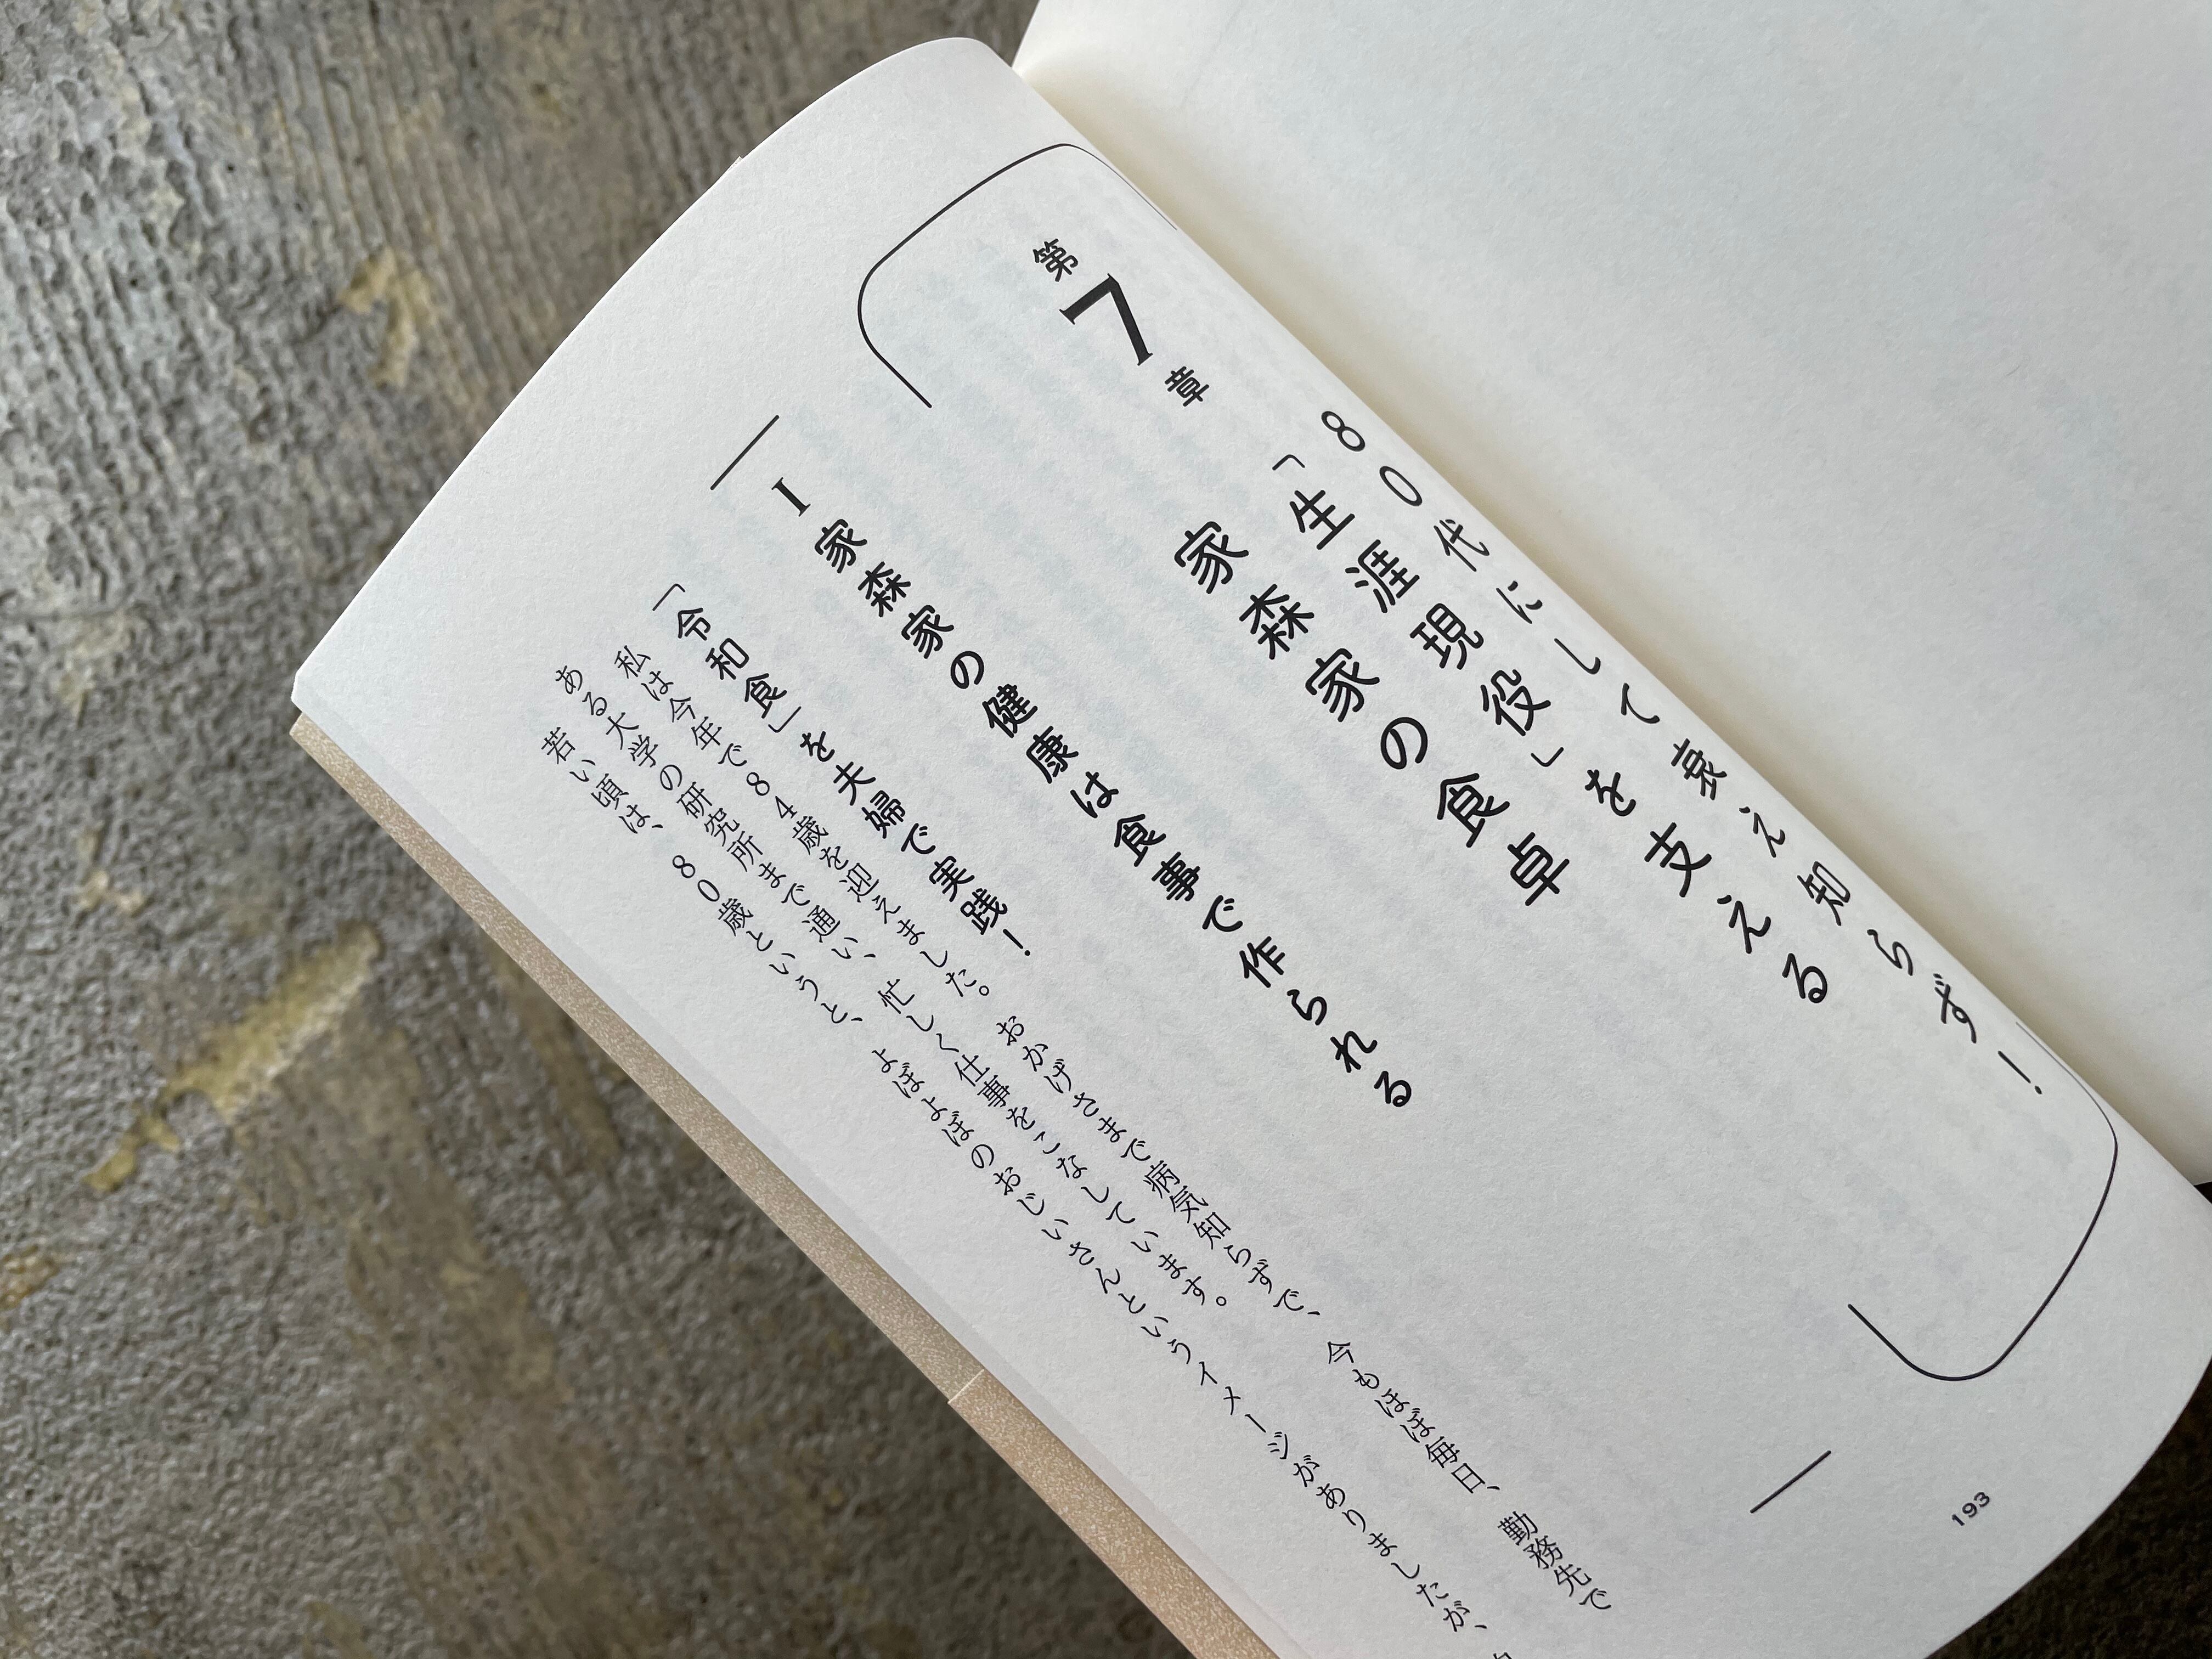 第7章
80代にして衰え知らず!
「生涯現役」を支える
家森家の食卓
I 家森家の健康は食事で作られる
「令和食」を夫婦で実践!
私は今年で84歳を迎えました。おかげさまで病気知らずで、今もほぼ毎日、勤務先で
ある大学の研究所まで通い、忙しく仕事をこなしています。
若い頃は、80歳というと、よぼよぼのおじいさんというイメージがありましたが、
193